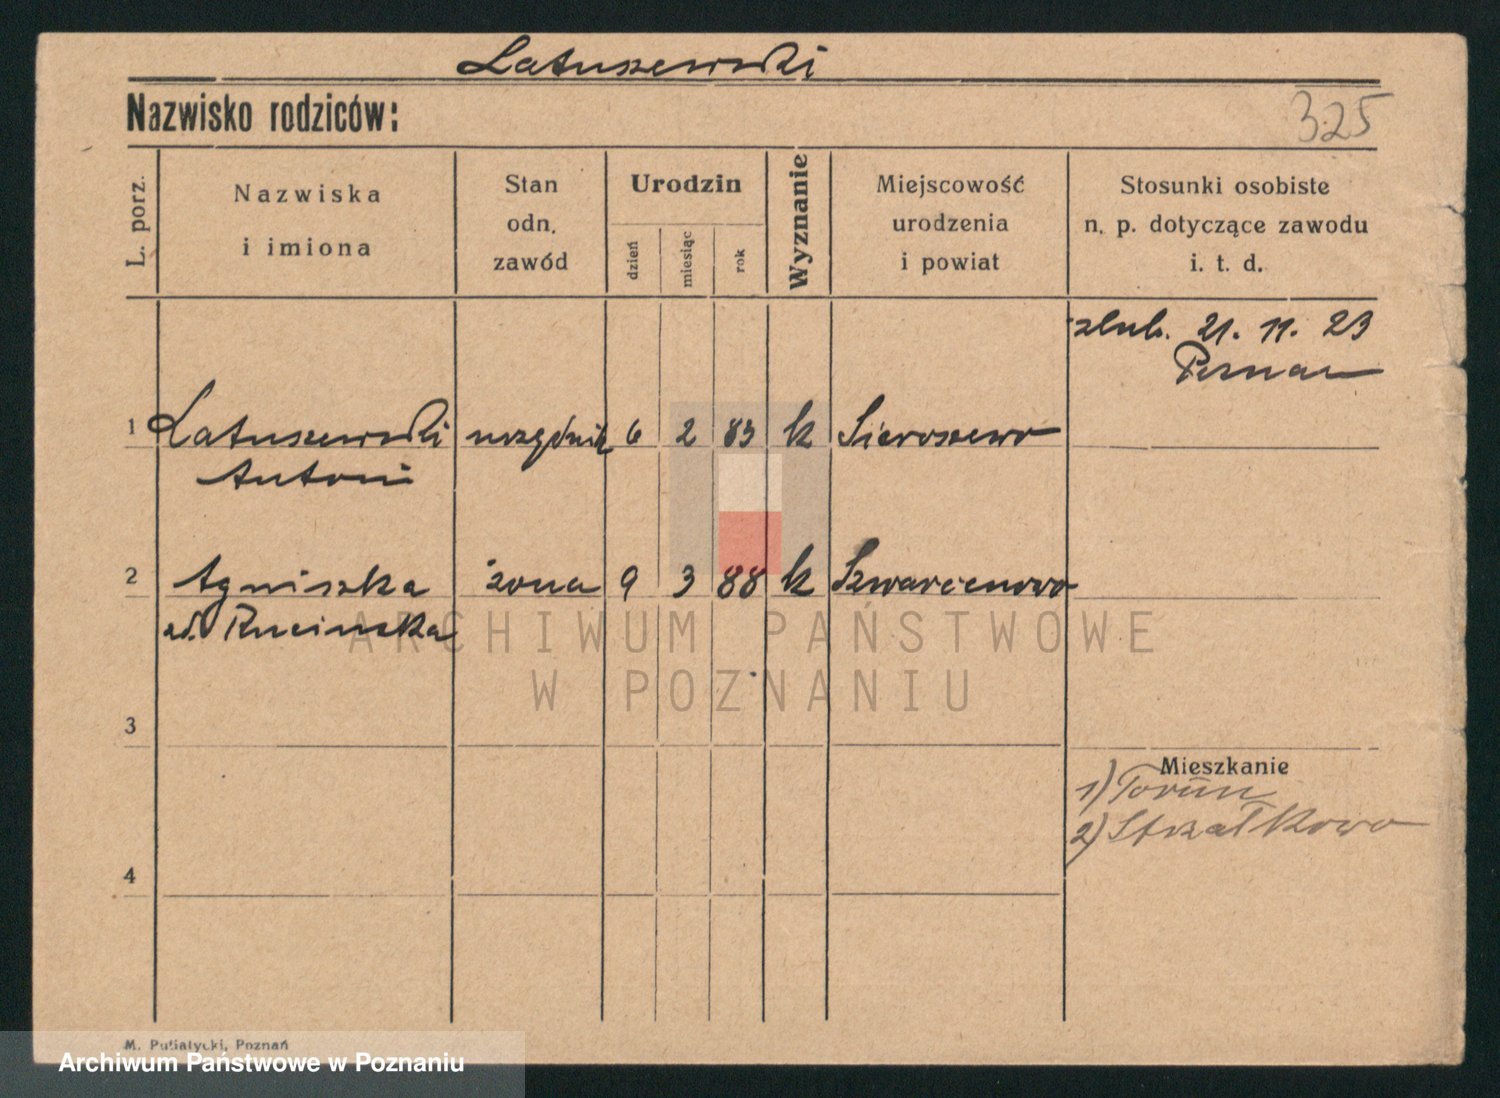 Latuszewski
Nazwisko rodziców:
325
L. porz.
Nazwiska
i imiona
Stan
odn.
zawód
Urodzin
dzień
miesiąc
rok
Wyznanie
Miejscowość
urodzenia
i powiat
Stosunki osobiste
n. p. dotyczące zawodu
i. t. d.
slub. 21. 11. 23
Poznan
1 Latuszewski urzędnik 6 2 83 k Sieroszewo
Antoni
2 Agniszka żona 9 3 88 k Szwarcenowo
zd. Rucinska
ARCHIWUM PAŃSTWOWE
W POZNANIU
3
Mieszkanie
1) Toruń
2) Strzałkowo
4
M. Putiatycki, Poznań
Archiwum Państwowe w Poznaniu